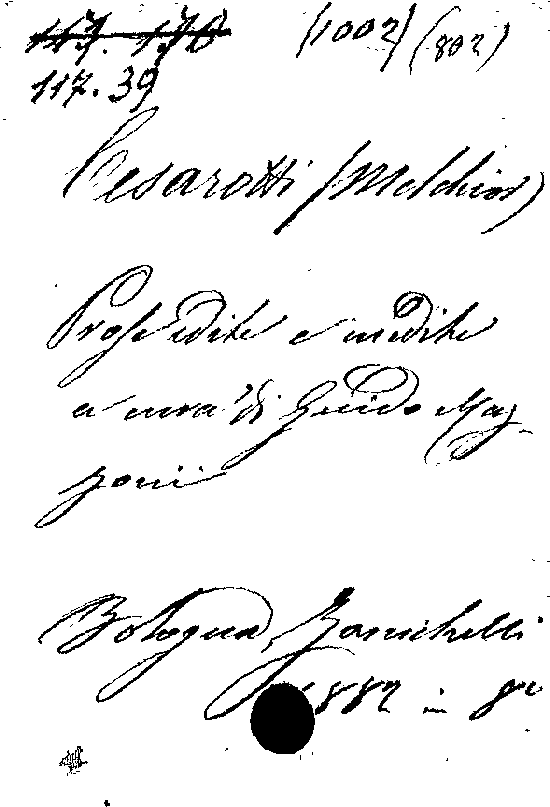 117. 170 (1002) (802)
117. 39
Cesarotti (Melchior)
Prose edite e inedite
a cura di Guido Maz-
zoni
Bologna, Zanichelli
1882 in 8º